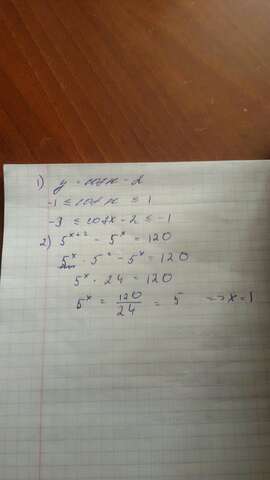 1) y = cos x - 2
-1 ≤ cos x ≤ 1
-3 ≤ cos x - 2 ≤ -1
2) 5^{x+2} - 5^x = 120
5^x · 5^2 - 5^x = 120
5^x · 24 = 120
5^x = 120/24 = 5 => x = 1